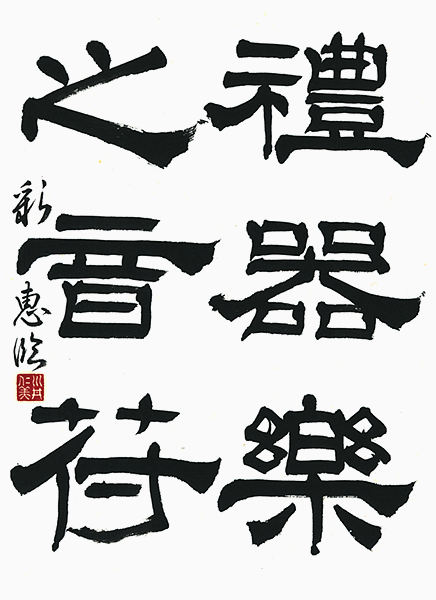 禮器樂
之音苻
彩惠臨